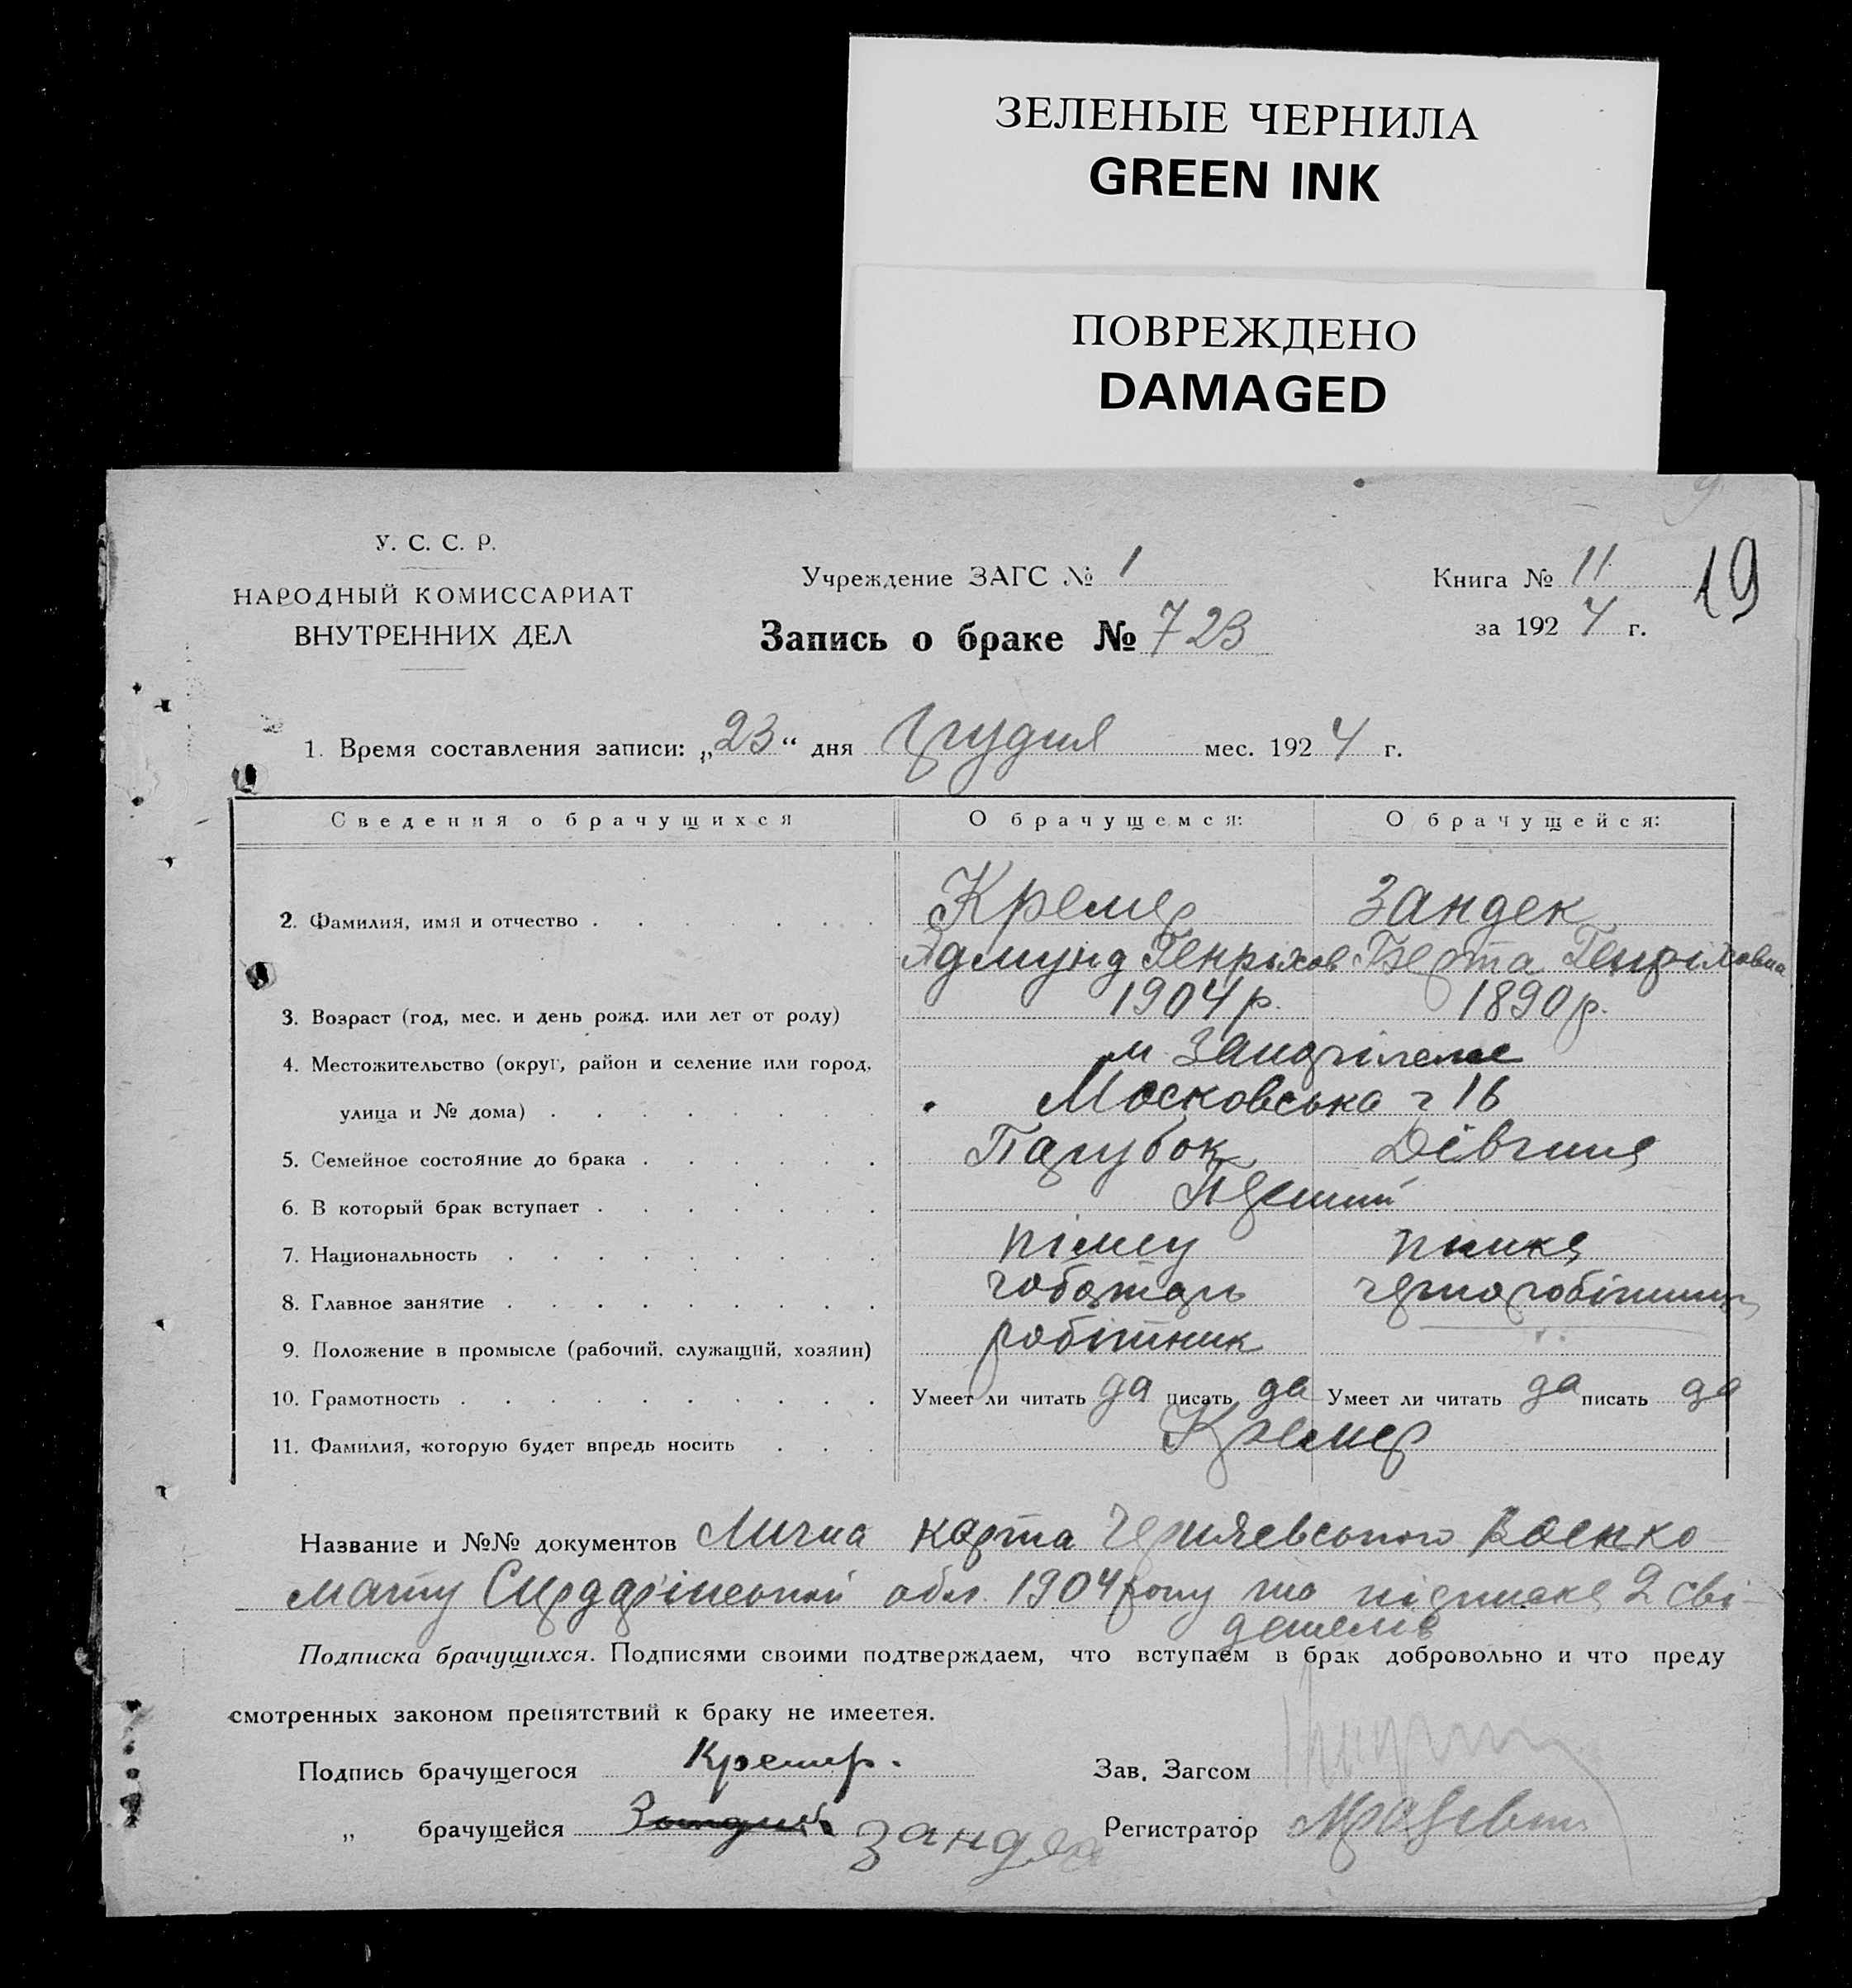 ЗЕЛЕНЫЕ ЧЕРНИЛА
GREEN INK
ПОВРЕЖДЕНО
DAMAGED
У. С. С. Р.
НАРОДНЫЙ КОМИССАРИАТ
ВНУТРЕННИХ ДЕЛ
Учреждение ЗАГС № 1
Запись о браке № 723
Книга № 11
19
за 1924 г.
1. Время составления записи: „23“ дня Грудня мес. 1924 г.
Сведения о брачущихся О брачущемся: О брачущейся:
2. Фамилия, имя и отчество Кремер Зандек
Адмунд Генрыхов Берта Генриховна
3. Возраст (год, мес. и день рожд. или лет от роду) 1904 р. 1890 р.
4. Местожительство (округ, район и селение или город, м
улица и № дома) Московська 16
5. Семейное состояние до брака Парубок Дівчина
6. В который брак вступает Перший
7. Национальность німец німка
8. Главное занятие чорноробітниц
9. Положение в промысле (рабочий, служащий, хозяин) робітник
10. Грамотность Умеет ли читать да писать да Умеет ли читать да писать да
11. Фамилия, которую будет впредь носить Кремер
Название и №№ документов Лична карта Черняевського Военко-
мату Сырдарінської обл. 1904 року та підписка 2 сві-
детелів
Подписка брачущихся. Подписями своими подтверждаем, что вступаем в брак добровольно и что преду
смотренных законом препятствий к браку не имеетея.
Подпись брачущегося Кремер. Зав. Загсом
„ брачущейся Зандек Регистратор